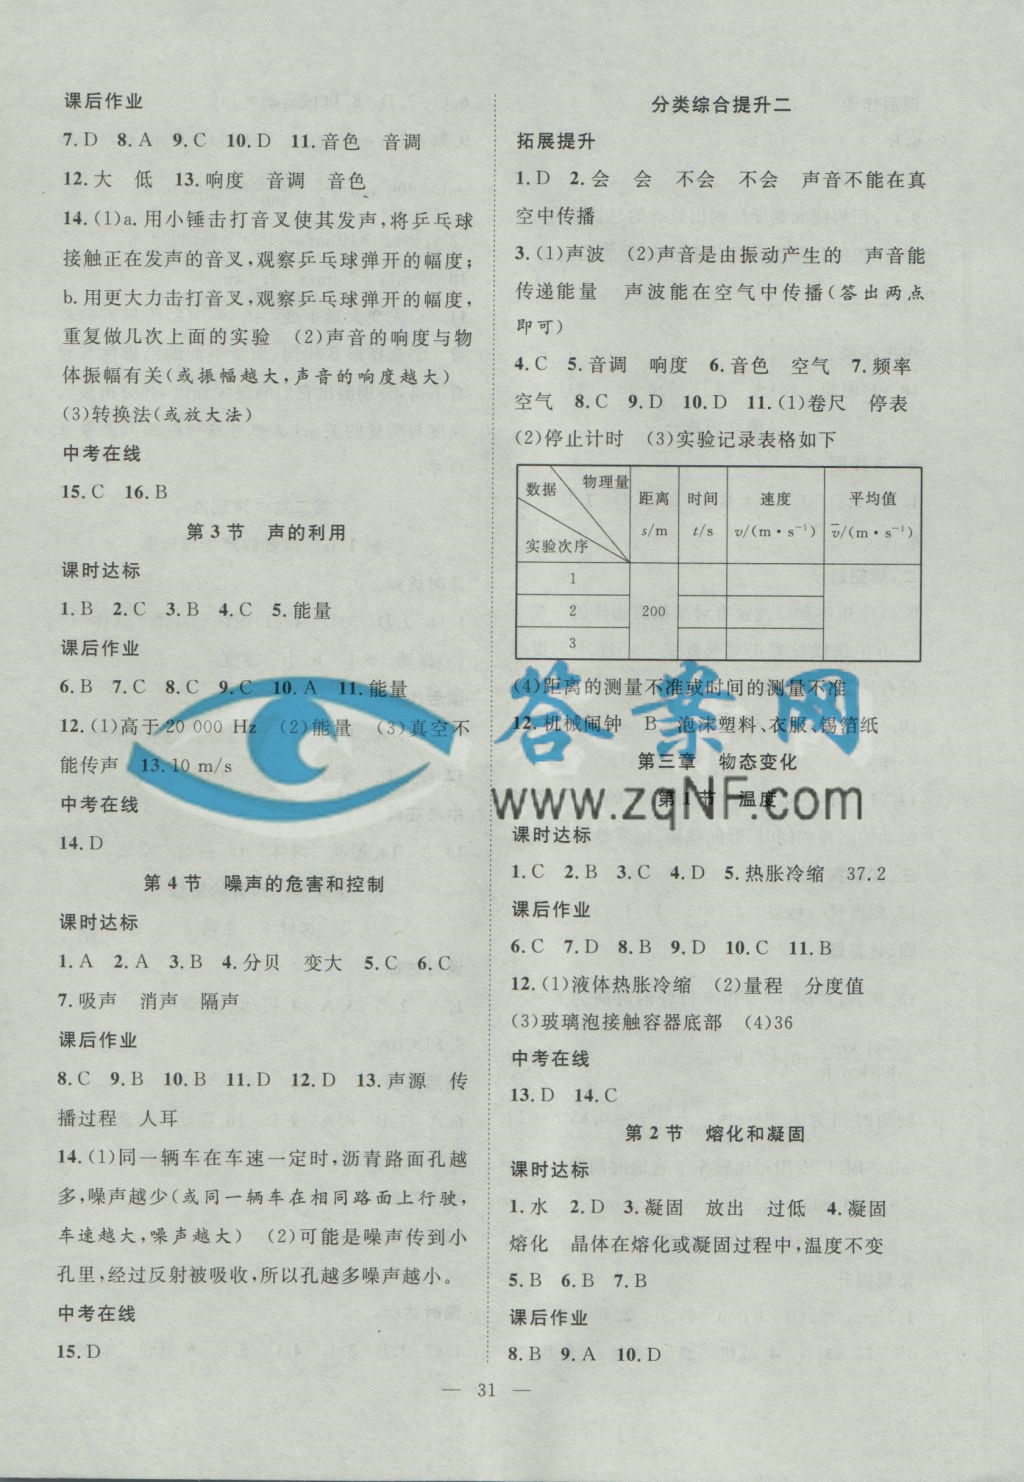 课后作业
7. D 8. A 9. C 10. D 11. 音色 音调
12. 大 低 13. 响度 音调 音色
14. (1)a. 用小锤击打音叉使其发声,将乒乓球
接触正在发声的音叉,观察乒乓球弹开的幅度;
b. 用更大力击打音叉,观察乒乓球弹开的幅度,
重复做几次上面的实验 (2)声音的响度与物
体振幅有关(或振幅越大,声音的响度越大)
(3)转换法(或放大法)
中考在线
15. C 16. B
第 3 节 声的利用
课时达标
1. B 2. C 3. B 4. C 5. 能量
课后作业
6. B 7. C 8. C 9. C 10. A 11. 能量
12. (1)高于 20 000 Hz (2)能量 (3)真空不
能传声 13. 10 m/s
中考在线
14. D
第 4 节 噪声的危害和控制
课时达标
1. A 2. A 3. B 4. 分贝 变大 5. C 6. C
7. 吸声 消声 隔声
课后作业
8. C 9. B 10. B 11. D 12. D 13. 声源 传
播过程 人耳
14. (1)同一辆车在车速一定时,沥青路面孔越
多,噪声越少(或同一辆车在相同路面上行驶,
车速越大,噪声越大) (2)可能是噪声传到小
孔里,经过反射被吸收,所以孔越多噪声越小。
中考在线
15. D
分类综合提升二
拓展提升
1. D 2. 会 会 不会 不会 声音不能在真
空中传播
3. (1)声波 (2)声音是由振动产生的 声音能
传递能量 声波能在空气中传播(答出两点
即可)
4. C 5. 音调 响度 6. 音色 空气 7. 频率
空气 8. C 9. D 10. D 11. (1)卷尺 停表
(2)停止计时 (3)实验记录表格如下
数据 物理量 实验次序 距离 s/m 时间 t/s 速度 v/(m·s⁻¹) 平均值 v̄/(m·s⁻¹)
1
2 200
3
(4)距离的测量不准或时间的测量不准
12. 机械闹钟 B 泡沫塑料、衣服、锡箔纸
答案网
www.zqNF.com
第三章 物态变化
第 1 节 温度
课时达标
1. C 2. B 3. C 4. D 5. 热胀冷缩 37.2
课后作业
6. C 7. D 8. B 9. D 10. C 11. B
12. (1)液体热胀冷缩 (2)量程 分度值
(3)玻璃泡接触容器底部 (4)36
中考在线
13. D 14. C
第 2 节 熔化和凝固
课时达标
1. 水 2. D 3. 凝固 放出 过低 4. 凝固
熔化 晶体在熔化或凝固过程中,温度不变
5. B 6. B 7. B
课后作业
8. B 9. A 10. D
— 31 —